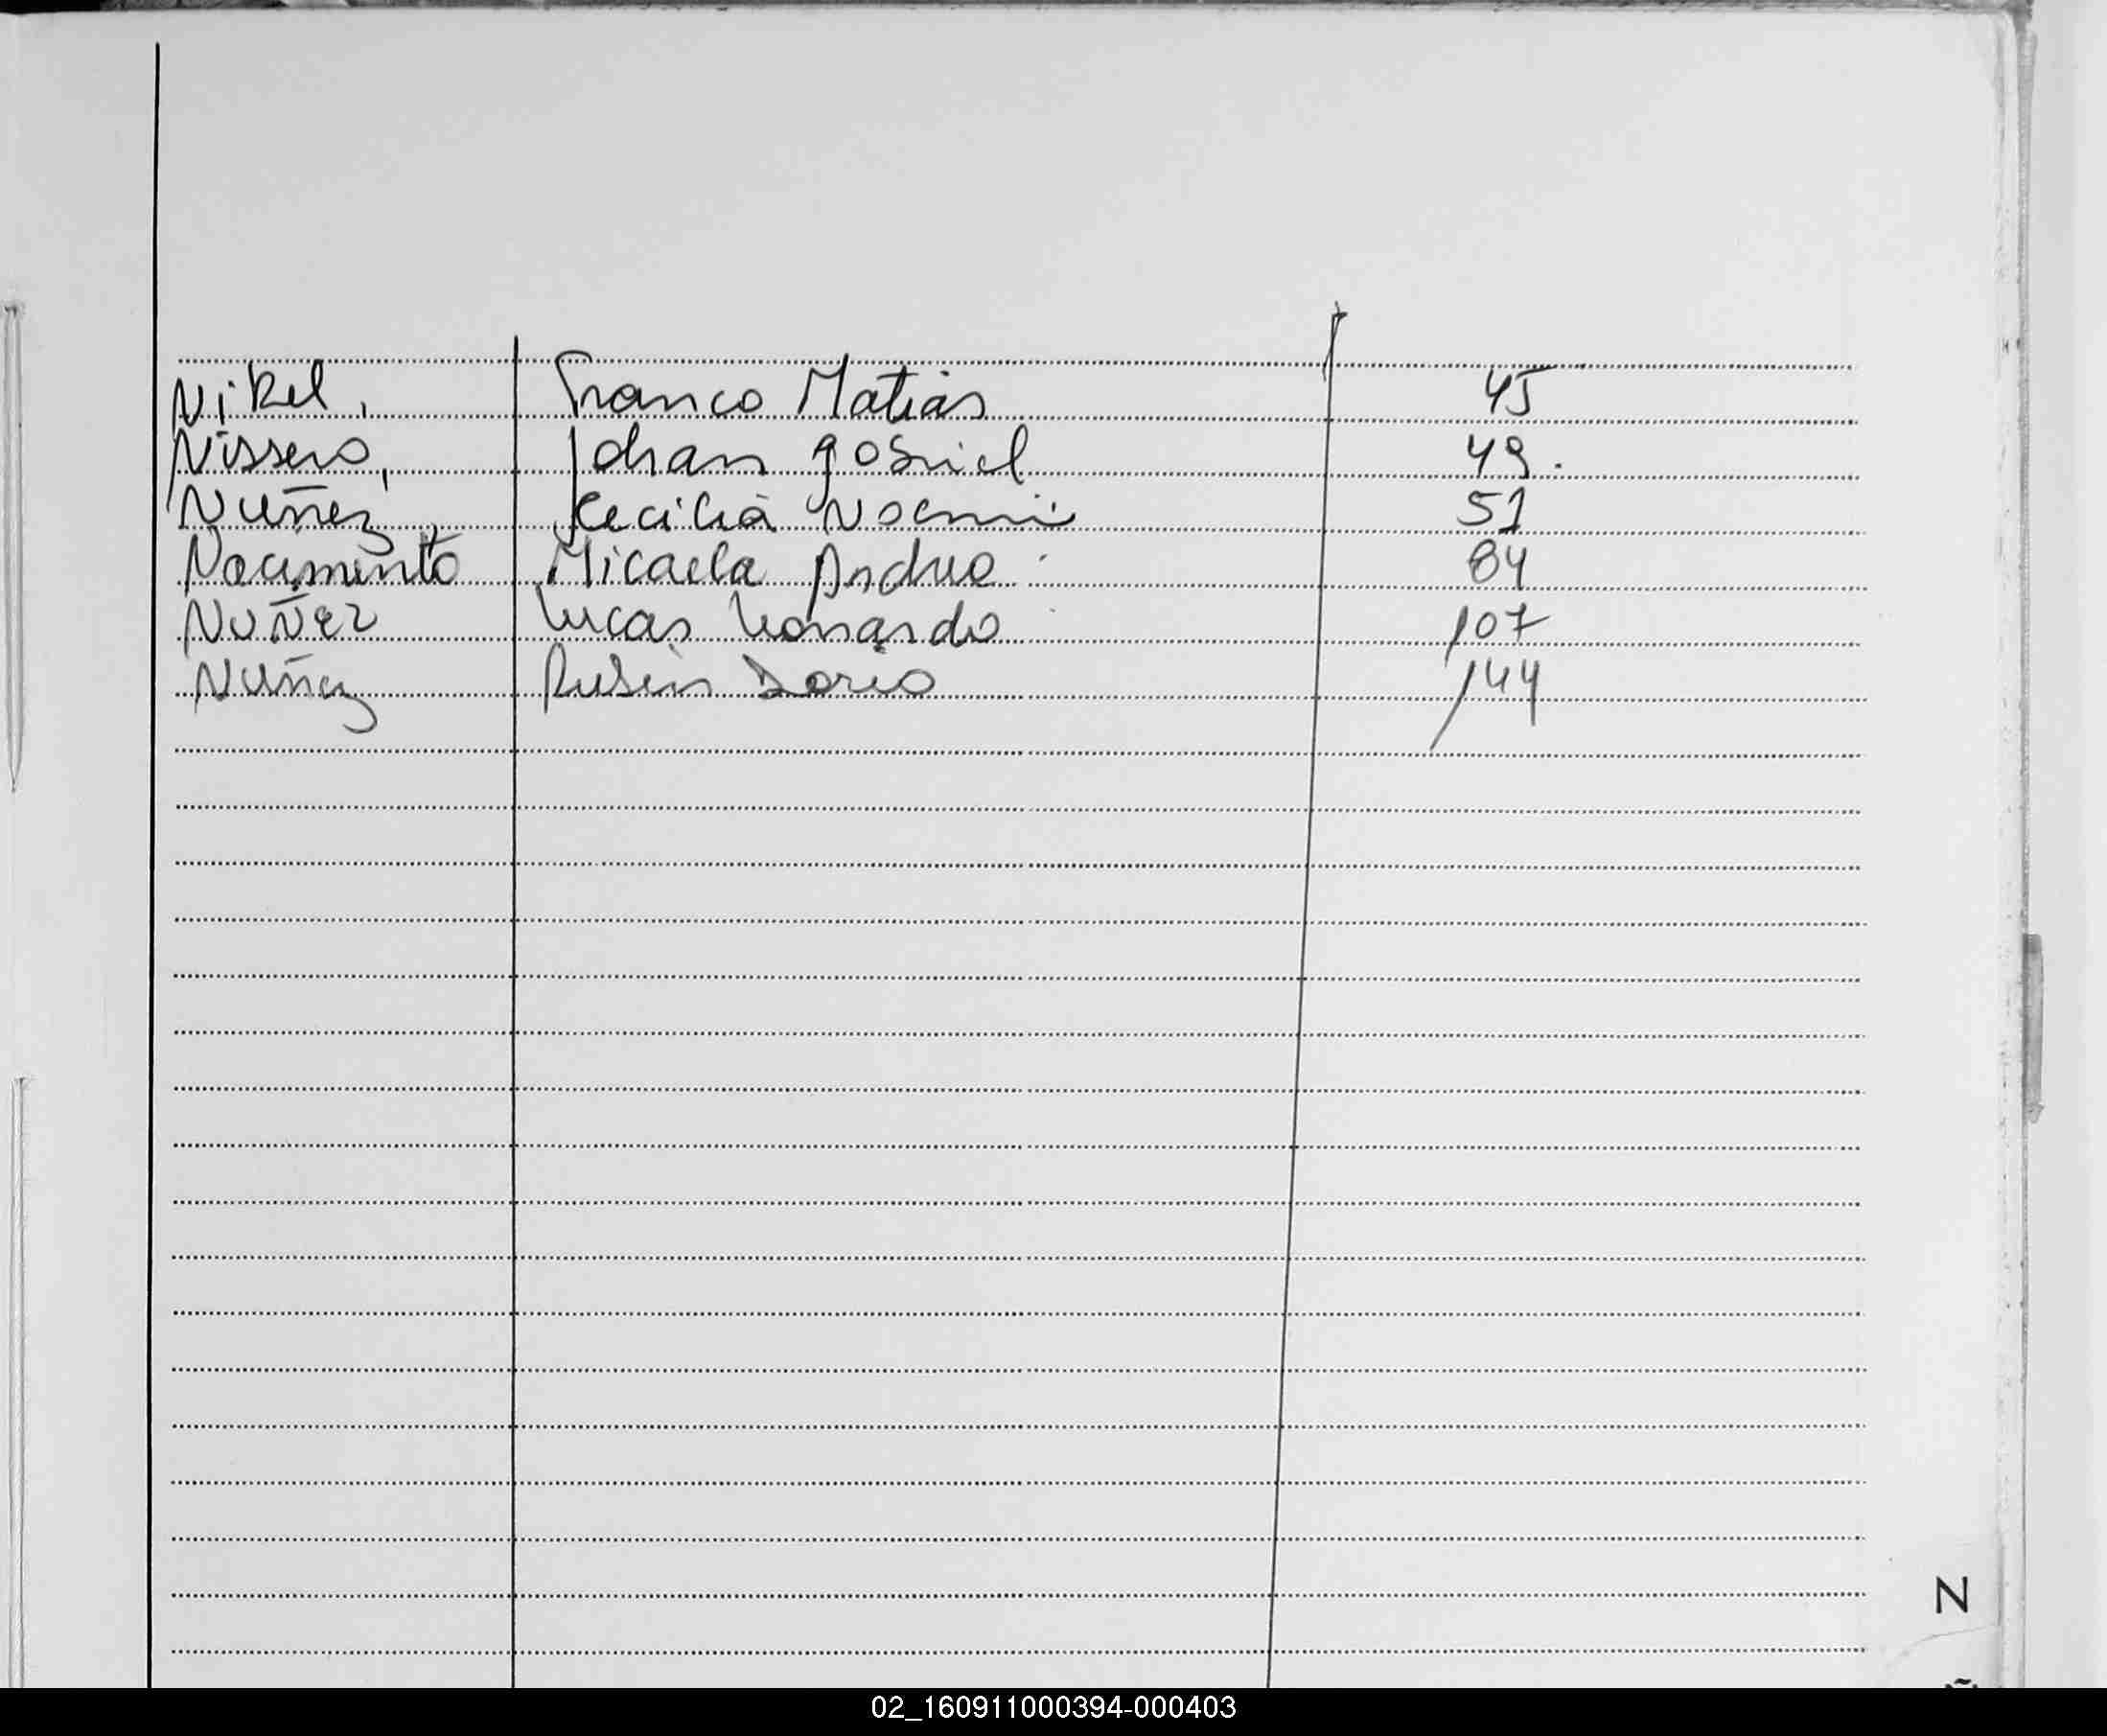 Nikel, Franco Matias 45
Nissero, Johan gabriel 49.
Nuñez, Cecilia Noemi 51
Nacimento Micaela Andrea 84
NuÑez Lucas Leonardo 107
Nuñez Rubén Dario 144
N
Ñ
02_160911000394-000403